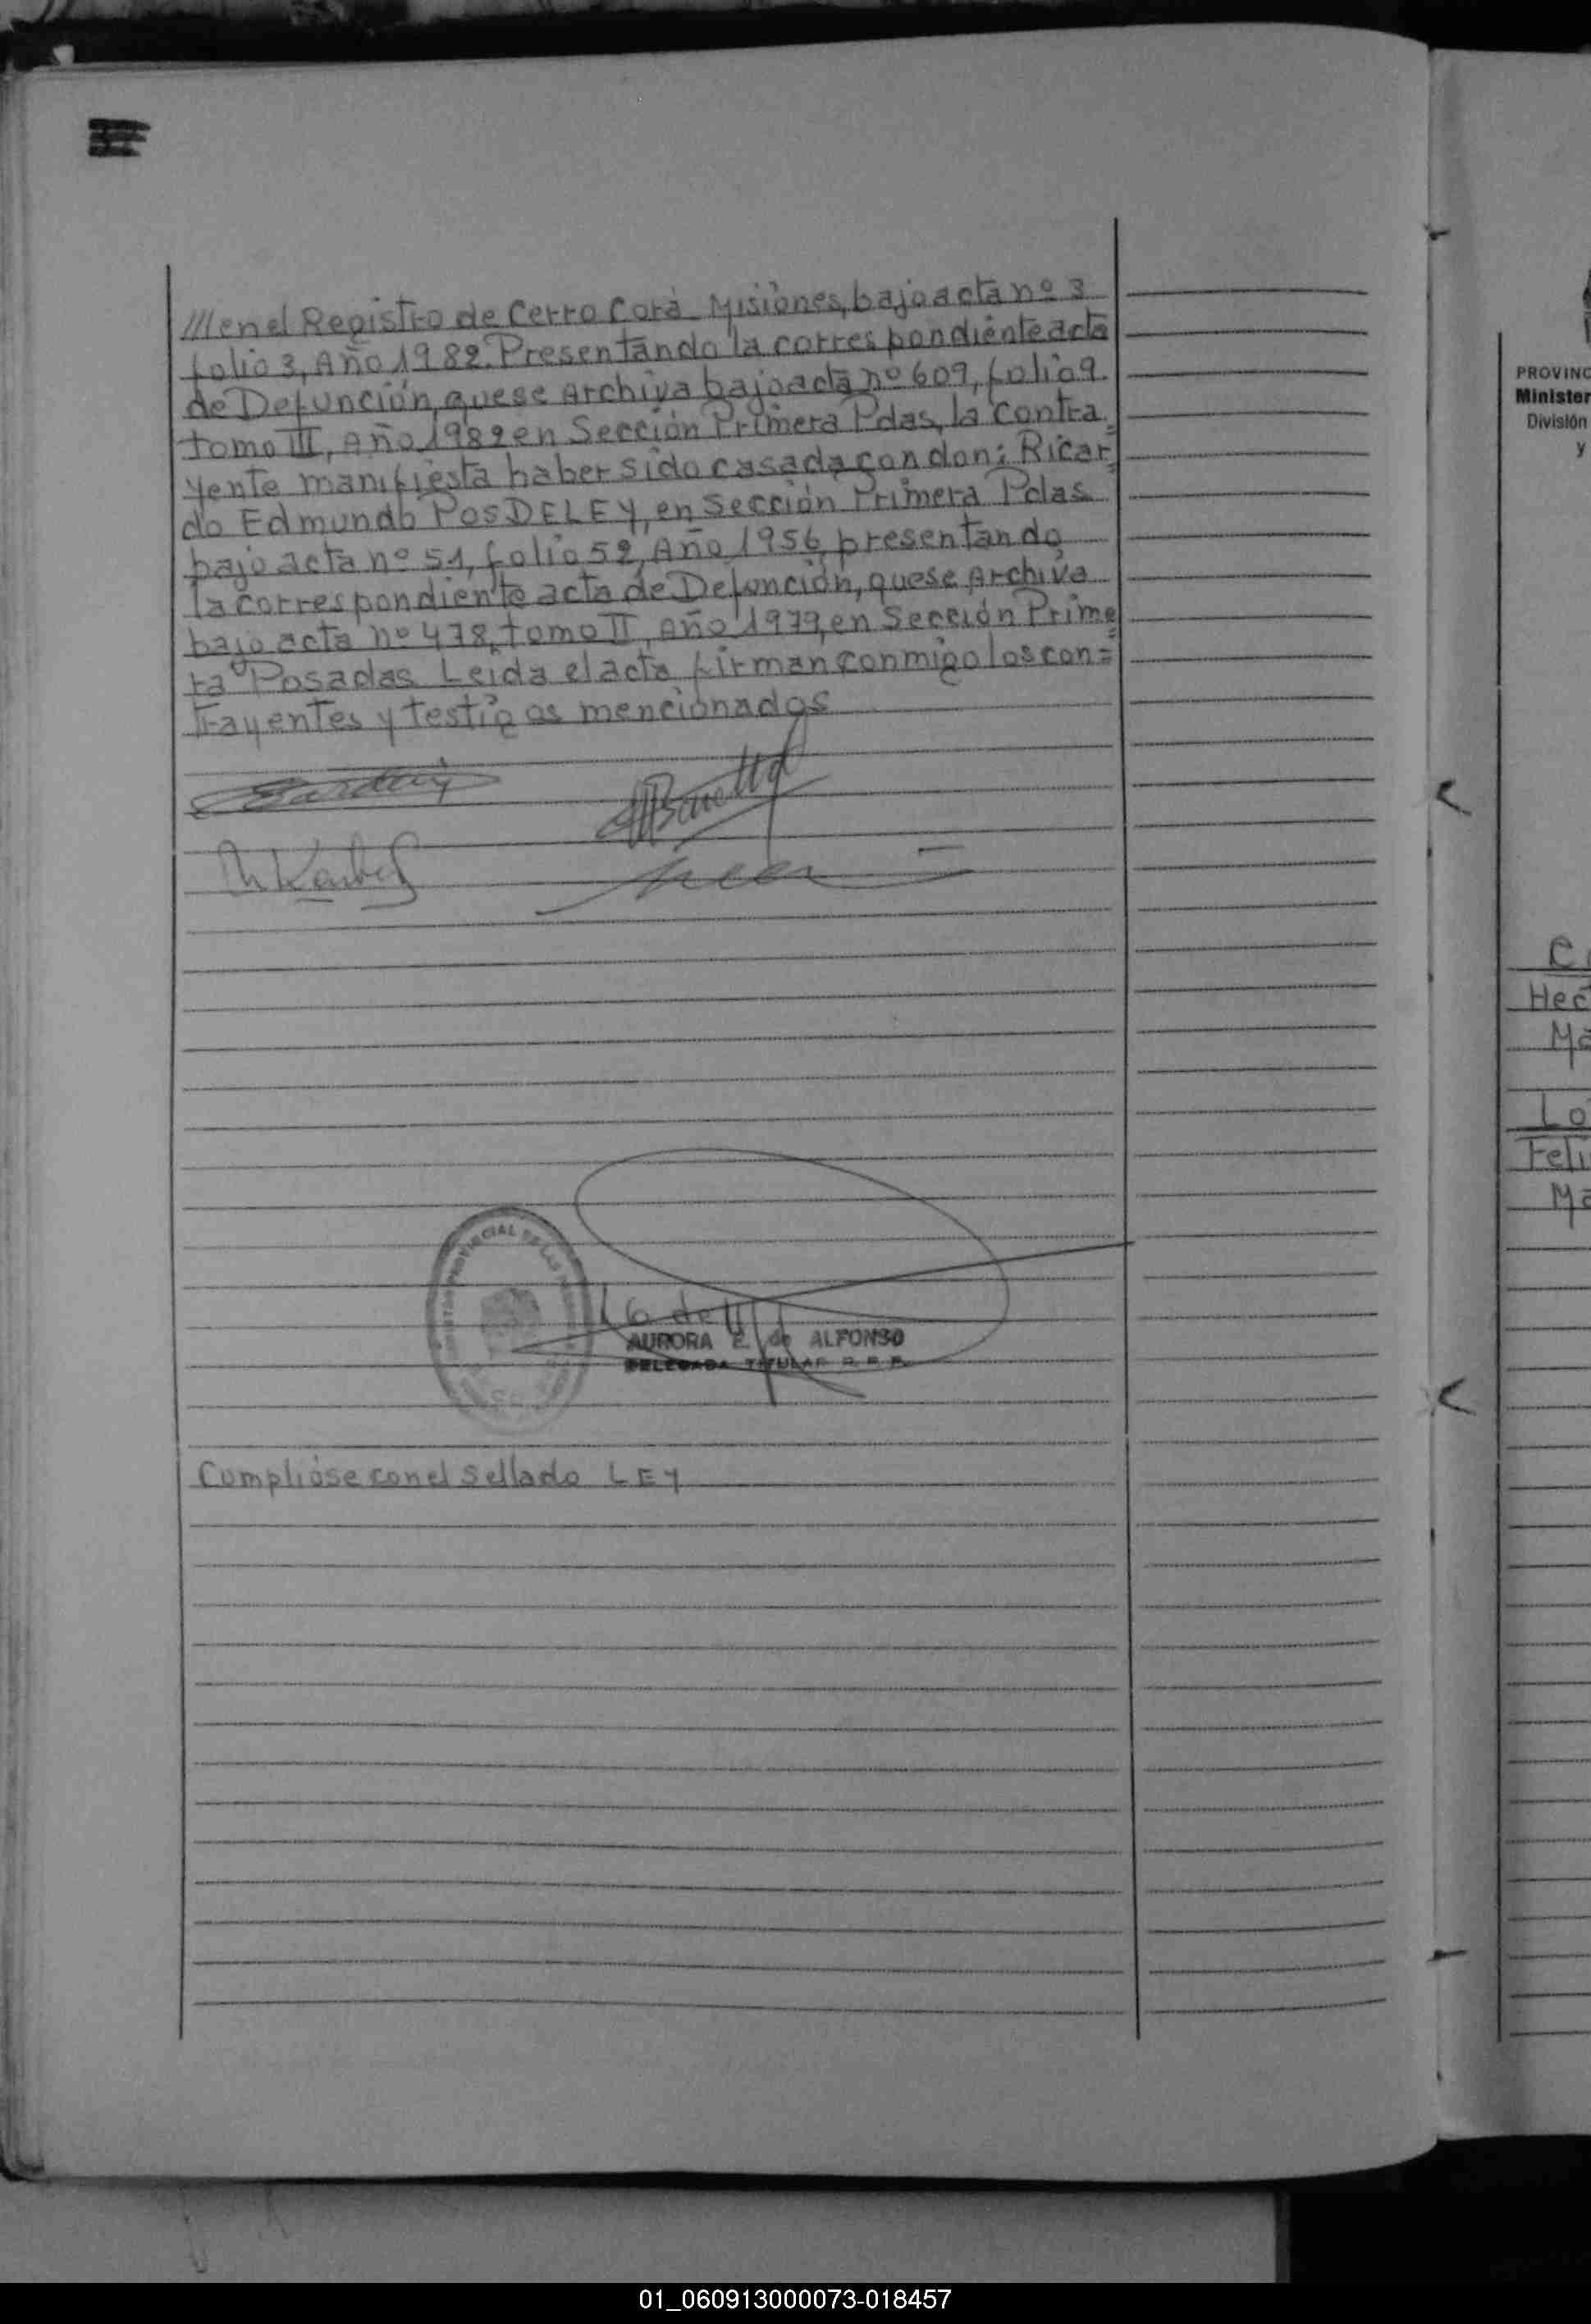 ///en el Registro de Cerro Corá Misiones, bajo acta nº 3
folio 3, Año 1982. Presentando la correspondiente acta
de Defunción, que se Archiva bajo acta nº 609, folio 9
tomo III, Año 1982 en Sección Primera Pdas, la Contra
yente manifiesta haber sido casada con don: Ricar
do Edmundo POSDELEY, en Sección Primera Pdas
bajo acta nº 51, folio 52, Año 1956, presentando
la correspondiente acta de Defunción, que se Archiva
bajo acta nº 478, tomo II, Año 1979, en Sección Prime
ra Posadas Leida el acta firman conmigo los con=
trayentes y testigos mencionados
PROVINCIAL DE LAS
AURORA E. de ALFONSO
DELEGADA TITULAR R. P. P.
Cumplióse con el Sellado LEY
PROVINC
Minister
División
y
C
Hec
Ma
Lo
Feli
Ma
01_060913000073-018457